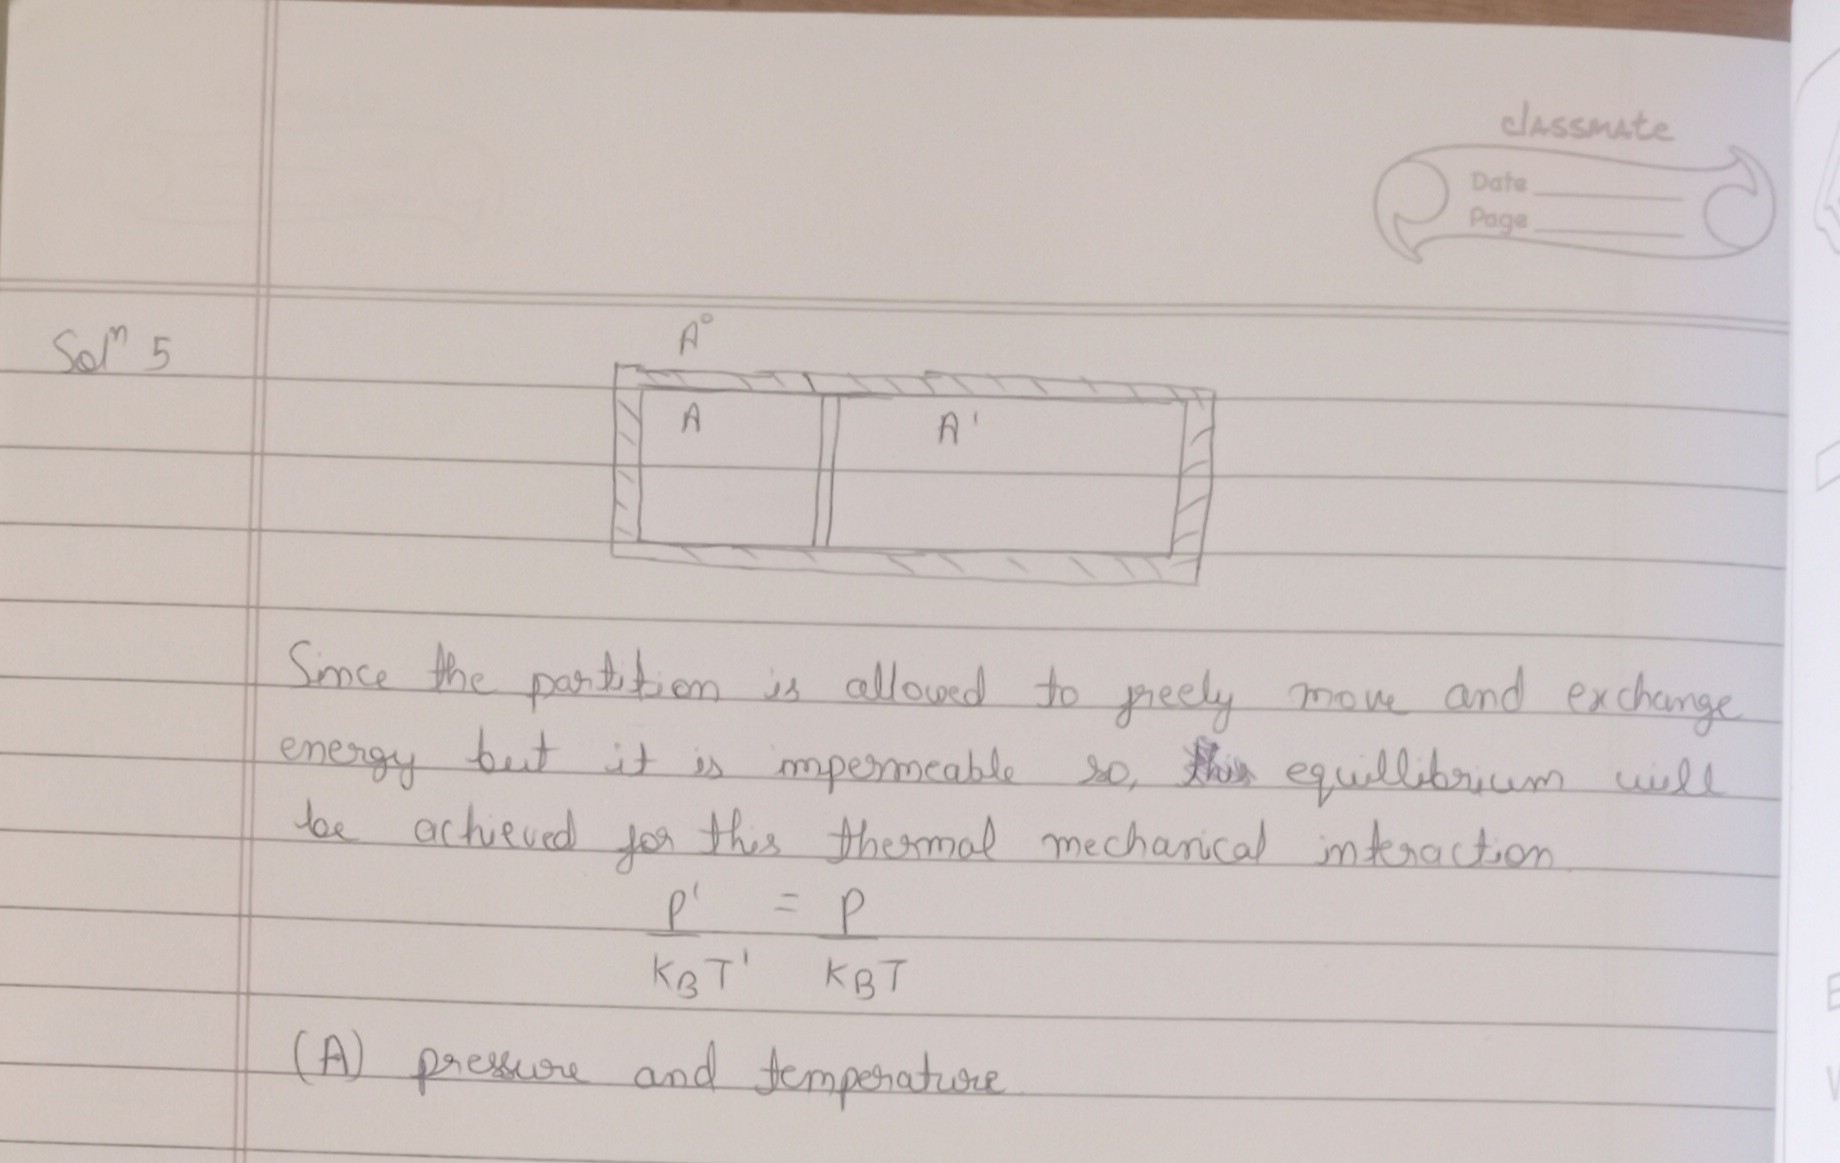 classmate
Date
Page
Solⁿ 5
A°
A A'
Since the partition is allowed to freely move and exchange
energy but it is impermeable so, equillibrium will
be achieved for this thermal mechanical interaction
P' = P
K_BT' K_BT
(A) pressure and temperature